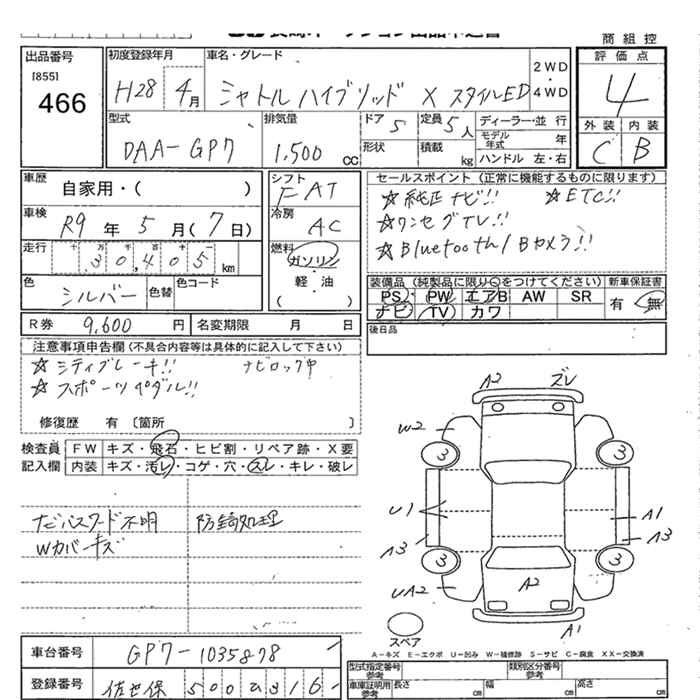 商 組 控
出品番号
[855]
466
初度登録年月
H28 4月
車名・グレード
シャトル ハイブリッド X スタイルED
2WD
・
4WD
評 価 点
4
外 装 内 装
C B
型式
DAA-GP7
排気量
1,500 cc
ドア 5
形状
定員 5 人
積載 kg
ディーラー・並 行
モデル年式 年
ハンドル 左・右
車歴
自家用・( )
シフト
FAT
車検
R9 年 5 月(7 日)
冷房
AC
走行
十 万 千 百 十 一
30,405 km
燃料
ガソリン
軽・油
( )
色
シルバー
色替
色コード
R券 9,600 円
名変期限 月 日
セールスポイント (正常に機能するものに限ります)
☆純正ナビ!! ☆ETC!!
☆ワンセグTV!!
☆Bluetooth/Bカメラ!!
装備品 (純製品に限り○をつけてください)
PS PW エアB AW SR
ナビ TV カワ
新車保証書
有 無
後日品
注意事項申告欄 (不具合内容等は具体的に記入して下さい)
☆シティブレーキ!! ナビロック中
☆スポーツペダル!!
修復歴 有 〔箇所 〕
検査員
記入欄
FW キズ・飛石・ヒビ割・リペア跡・X要
内装 キズ・汚レ・コゲ・穴・スレ・キレ・破レ
ナビパスワード不明 防錆処理
Wカバーキズ
A2 ズレ
W2
3 3
U1 A1
A3 A3
3 3
UA2 A2
A1
スペア
A-キズ E-エクボ U-凹み W-補修跡 S-サビ C-腐食 XX-交換済
車台番号 GP7-1035878
登録番号 佐世保 500
型式指定番号
参考
類別区分番号
参考
車庫証明用
参考
長さ cm 幅 cm 高さ cm